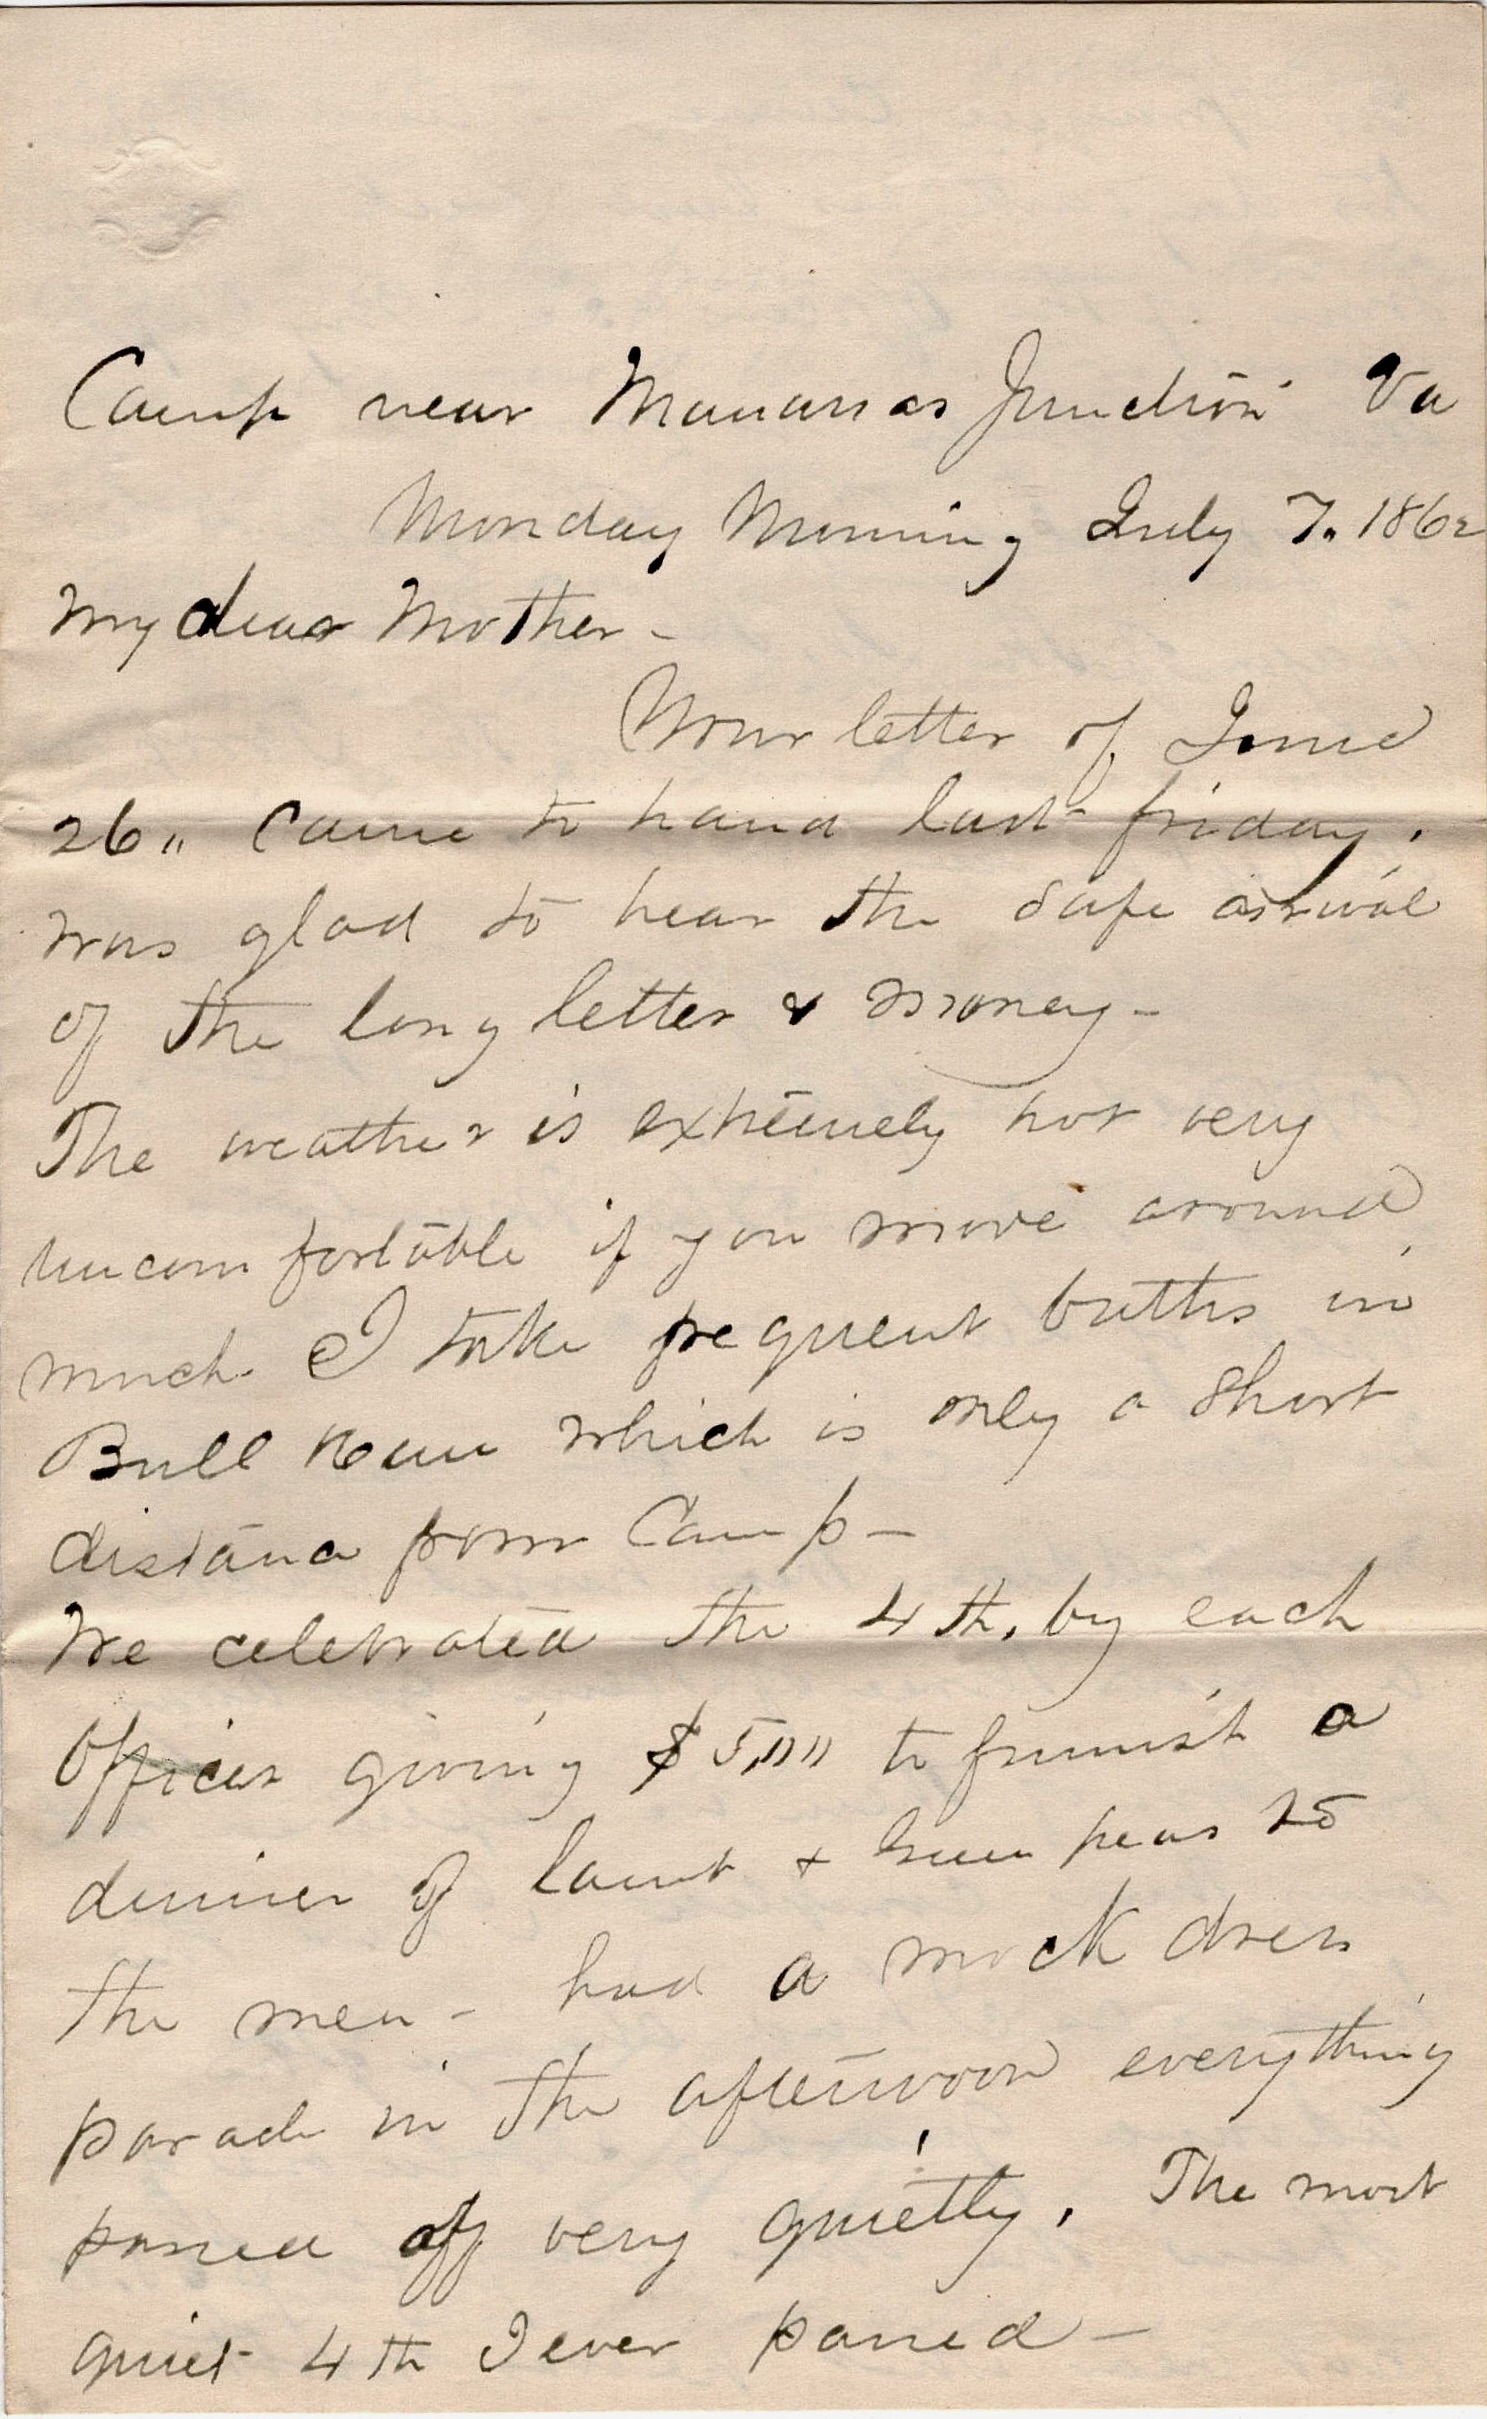 Camp near Manassas Junction Va
Monday Morning July 7. 1862
My dear Mother -
Your letter of June
26" came to hand last friday.
was glad to hear the safe arrival
of the long letter & money -
The weather is extremely hot very
uncomfortable if you move around
much. I take frequent baths in
Bull Run which is only a short
distance from Camp -
We celebrated the 4th, by each
Officer giving $5,"" to furnish a
dinner of lamb & Green peas to
the men - had a mock dress
parade in the afternoon everything
passed off very quietly. The most
quiet 4th I ever passed -